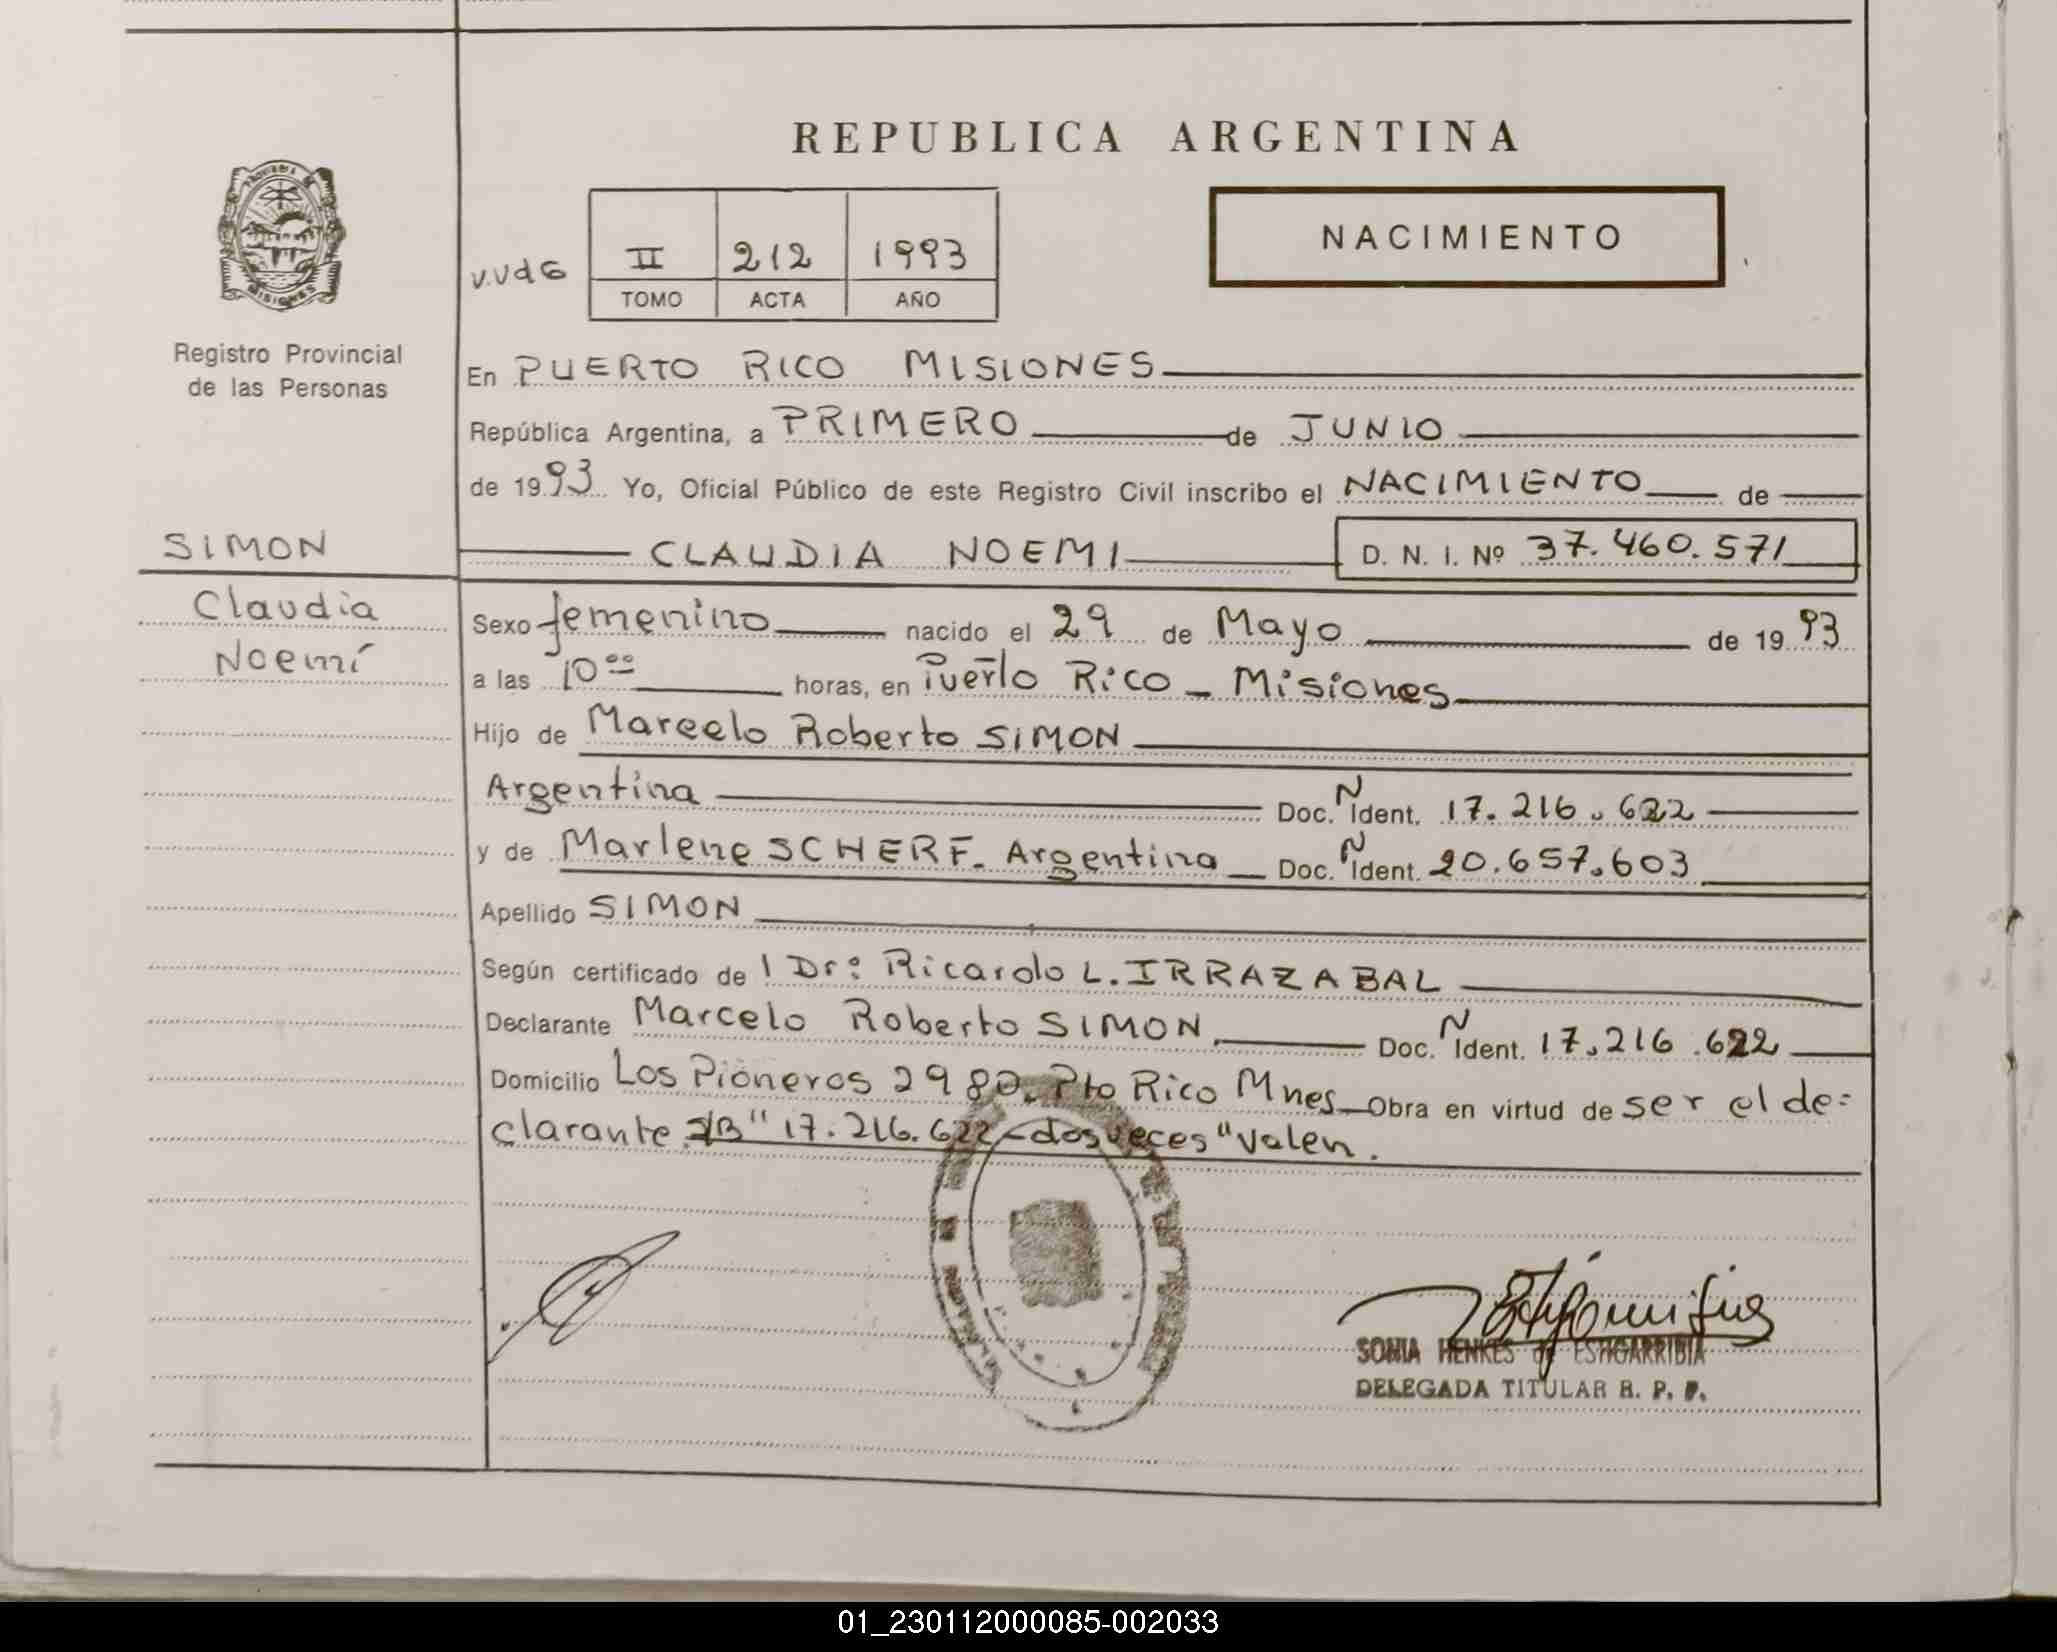 REPUBLICA ARGENTINA
NACIMIENTO
PROVINCIA DE
MISIONES
Registro Provincial
de las Personas
v.vdG
II 212 1993
TOMO ACTA AÑO
En PUERTO RICO MISIONES
República Argentina, a PRIMERO de JUNIO
de 1993 Yo, Oficial Público de este Registro Civil inscribo el NACIMIENTO de
CLAUDIA NOEMI D. N. I. Nº 37.460.571
SIMON
Claudia
Noemí
Sexo femenino nacido el 29 de Mayo de 1993
a las 10 00 horas, en Puerto Rico - Misiones
Hijo de Marcelo Roberto SIMON
Argentina Doc. N Ident. 17.216.622
y de Marlene SCHERF. Argentina Doc. N Ident. 20.657.603
Apellido SIMON
Según certificado de l Dr: Ricardo L. IRRAZABAL
Declarante Marcelo Roberto SIMON Doc. N Ident. 17.216.622
Domicilio Los Pioneros 2980. Pto Rico Mnes Obra en virtud de ser el de=
clarante. S/B" 17.216.622 - dos veces "Valen.
SONIA HENKES de ESTIGARRIBIA
DELEGADA TITULAR R. P. P.
01_230112000085-002033